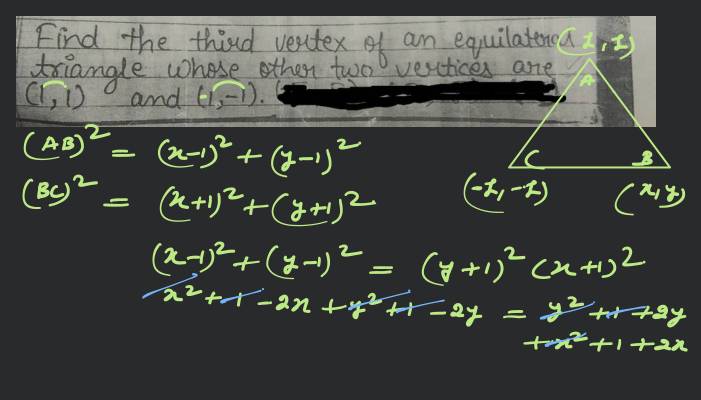 Find the third vertex of an equilateral
triangle whose other two vertices are
(1,1) and (-1,-1).
(1,1)
A
C B
(-1,-1) (x,y)
(AB)² = (x-1)² + (y-1)²
(BC)² = (x+1)² + (y+1)²
(x-1)² + (y-1)² = (y+1)² (x+1)²
x² + 1 - 2x + y² + 1 - 2y = y² + 1 + 2y
+ x² + 1 + 2x